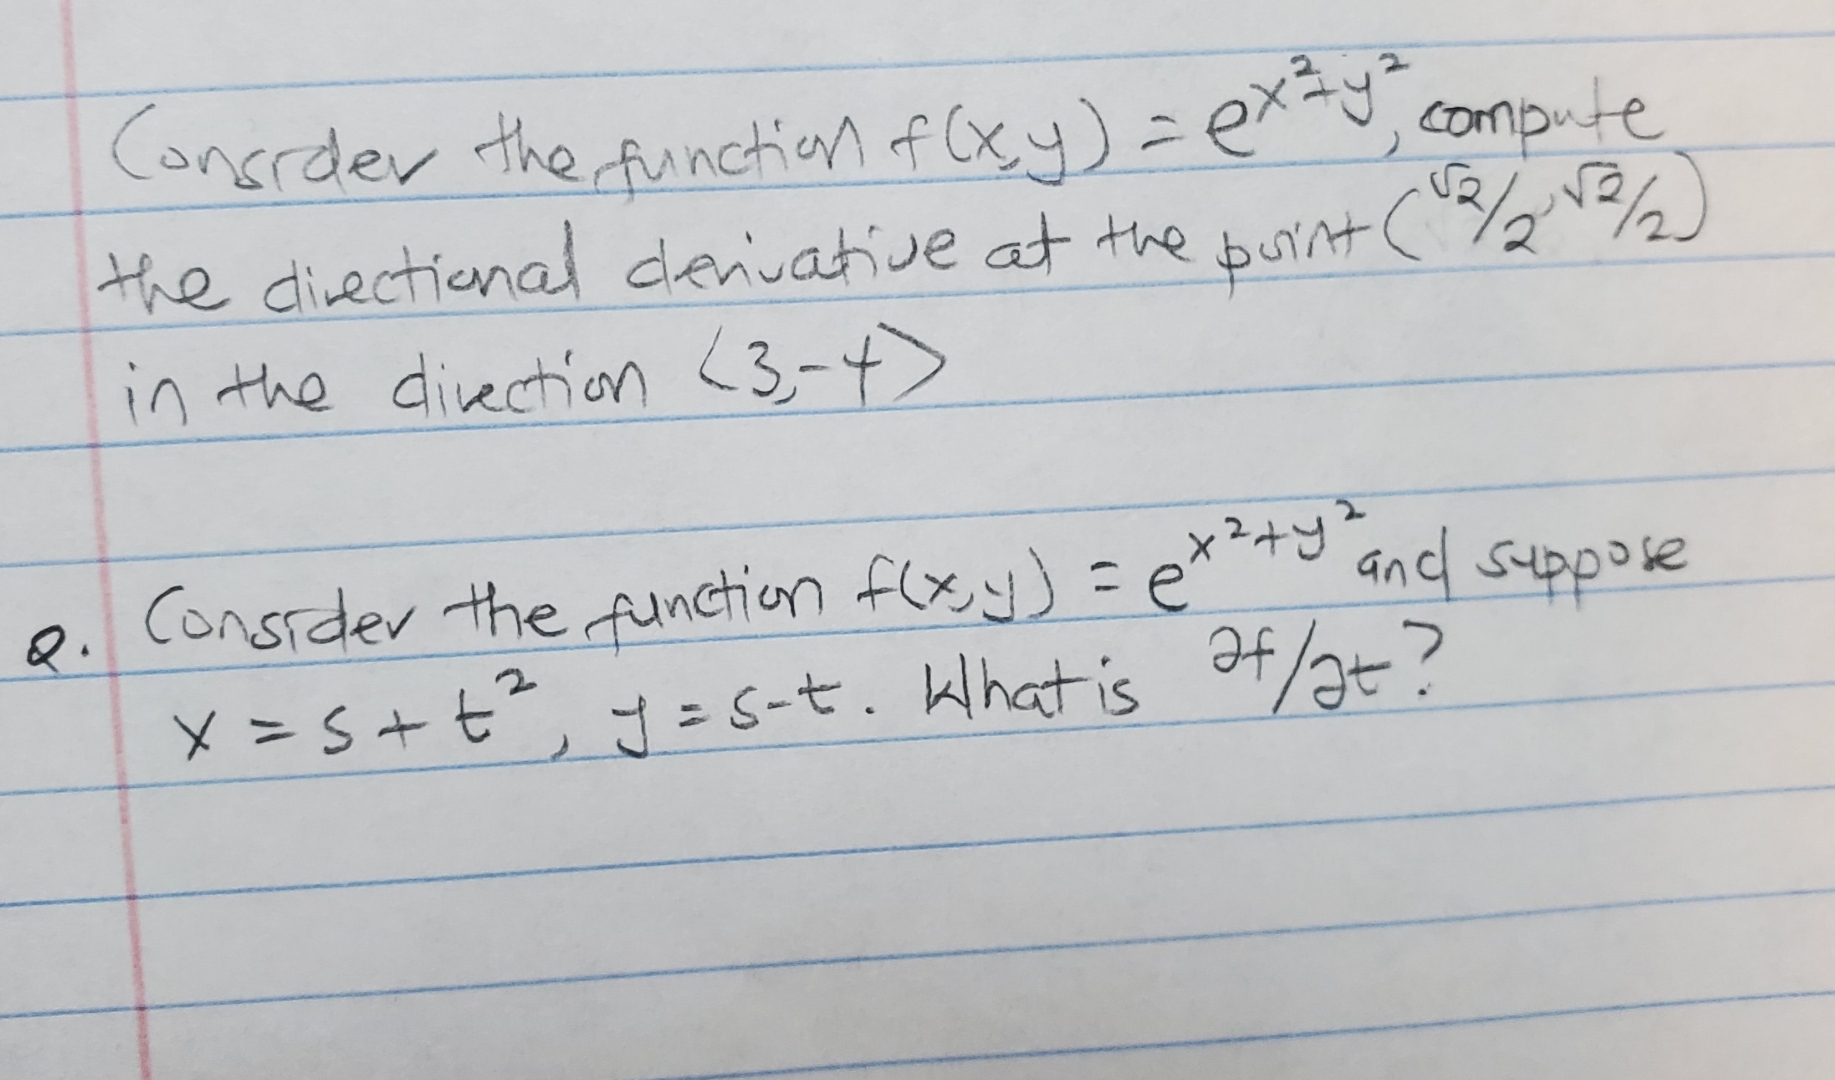 Consider the function f(x,y) = e^{x²+y²}, compute
the directional derivative at the point (√2/2, √2/2)
in the direction <3,-4>
Q. Consider the function f(x,y) = e^{x²+y²} and suppose
x = s + t², y = s-t. What is ∂f/∂t?